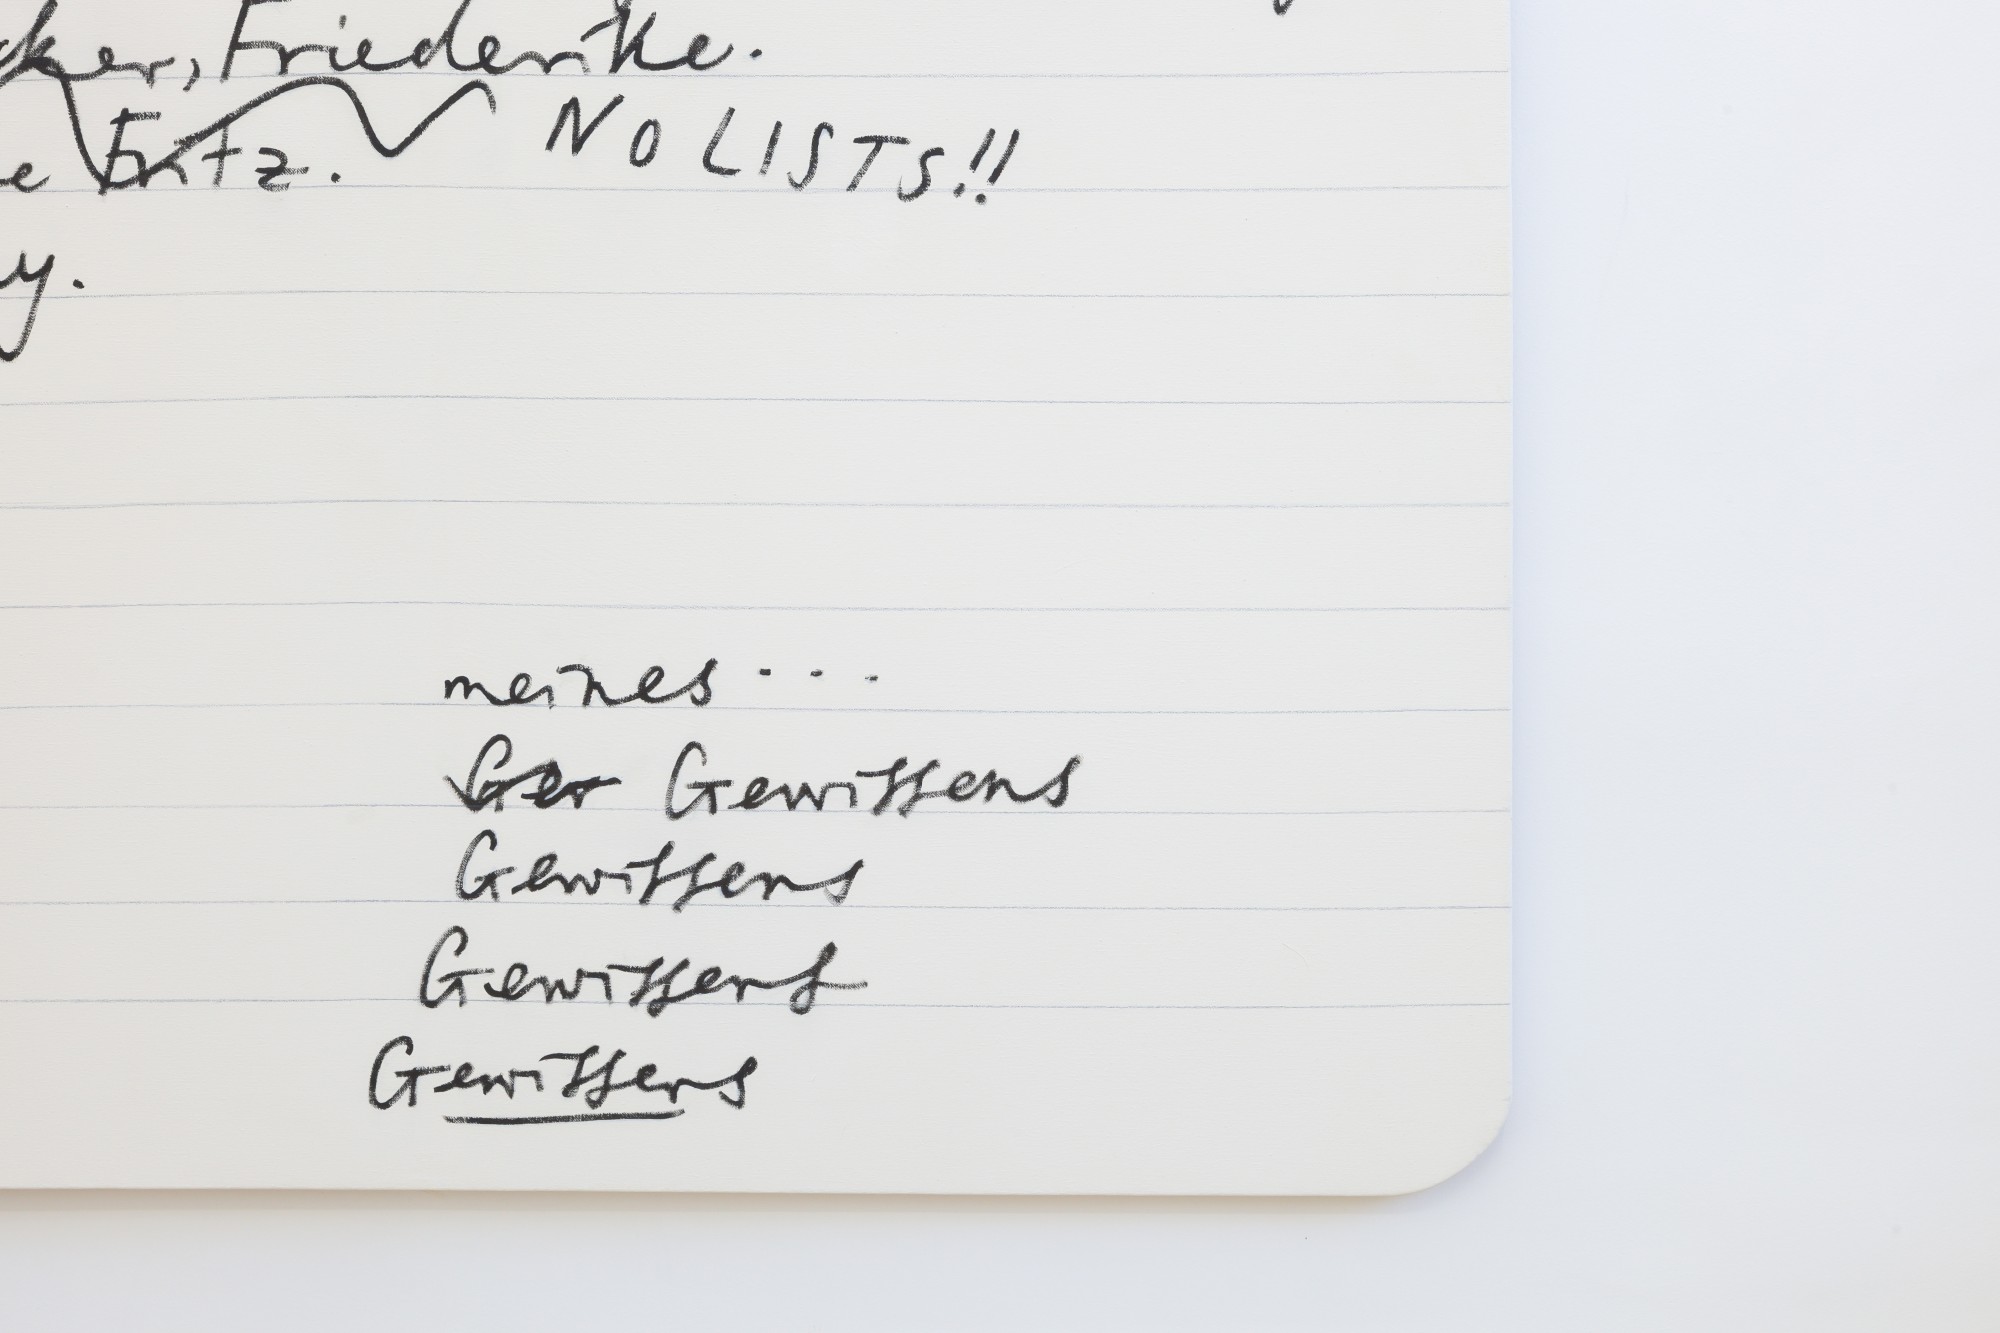 ker, Friederike.
e Fritz. NO LISTS!!
y.
meines...
Ger Gewissens
Gewissens
Gewissens
Gewissens